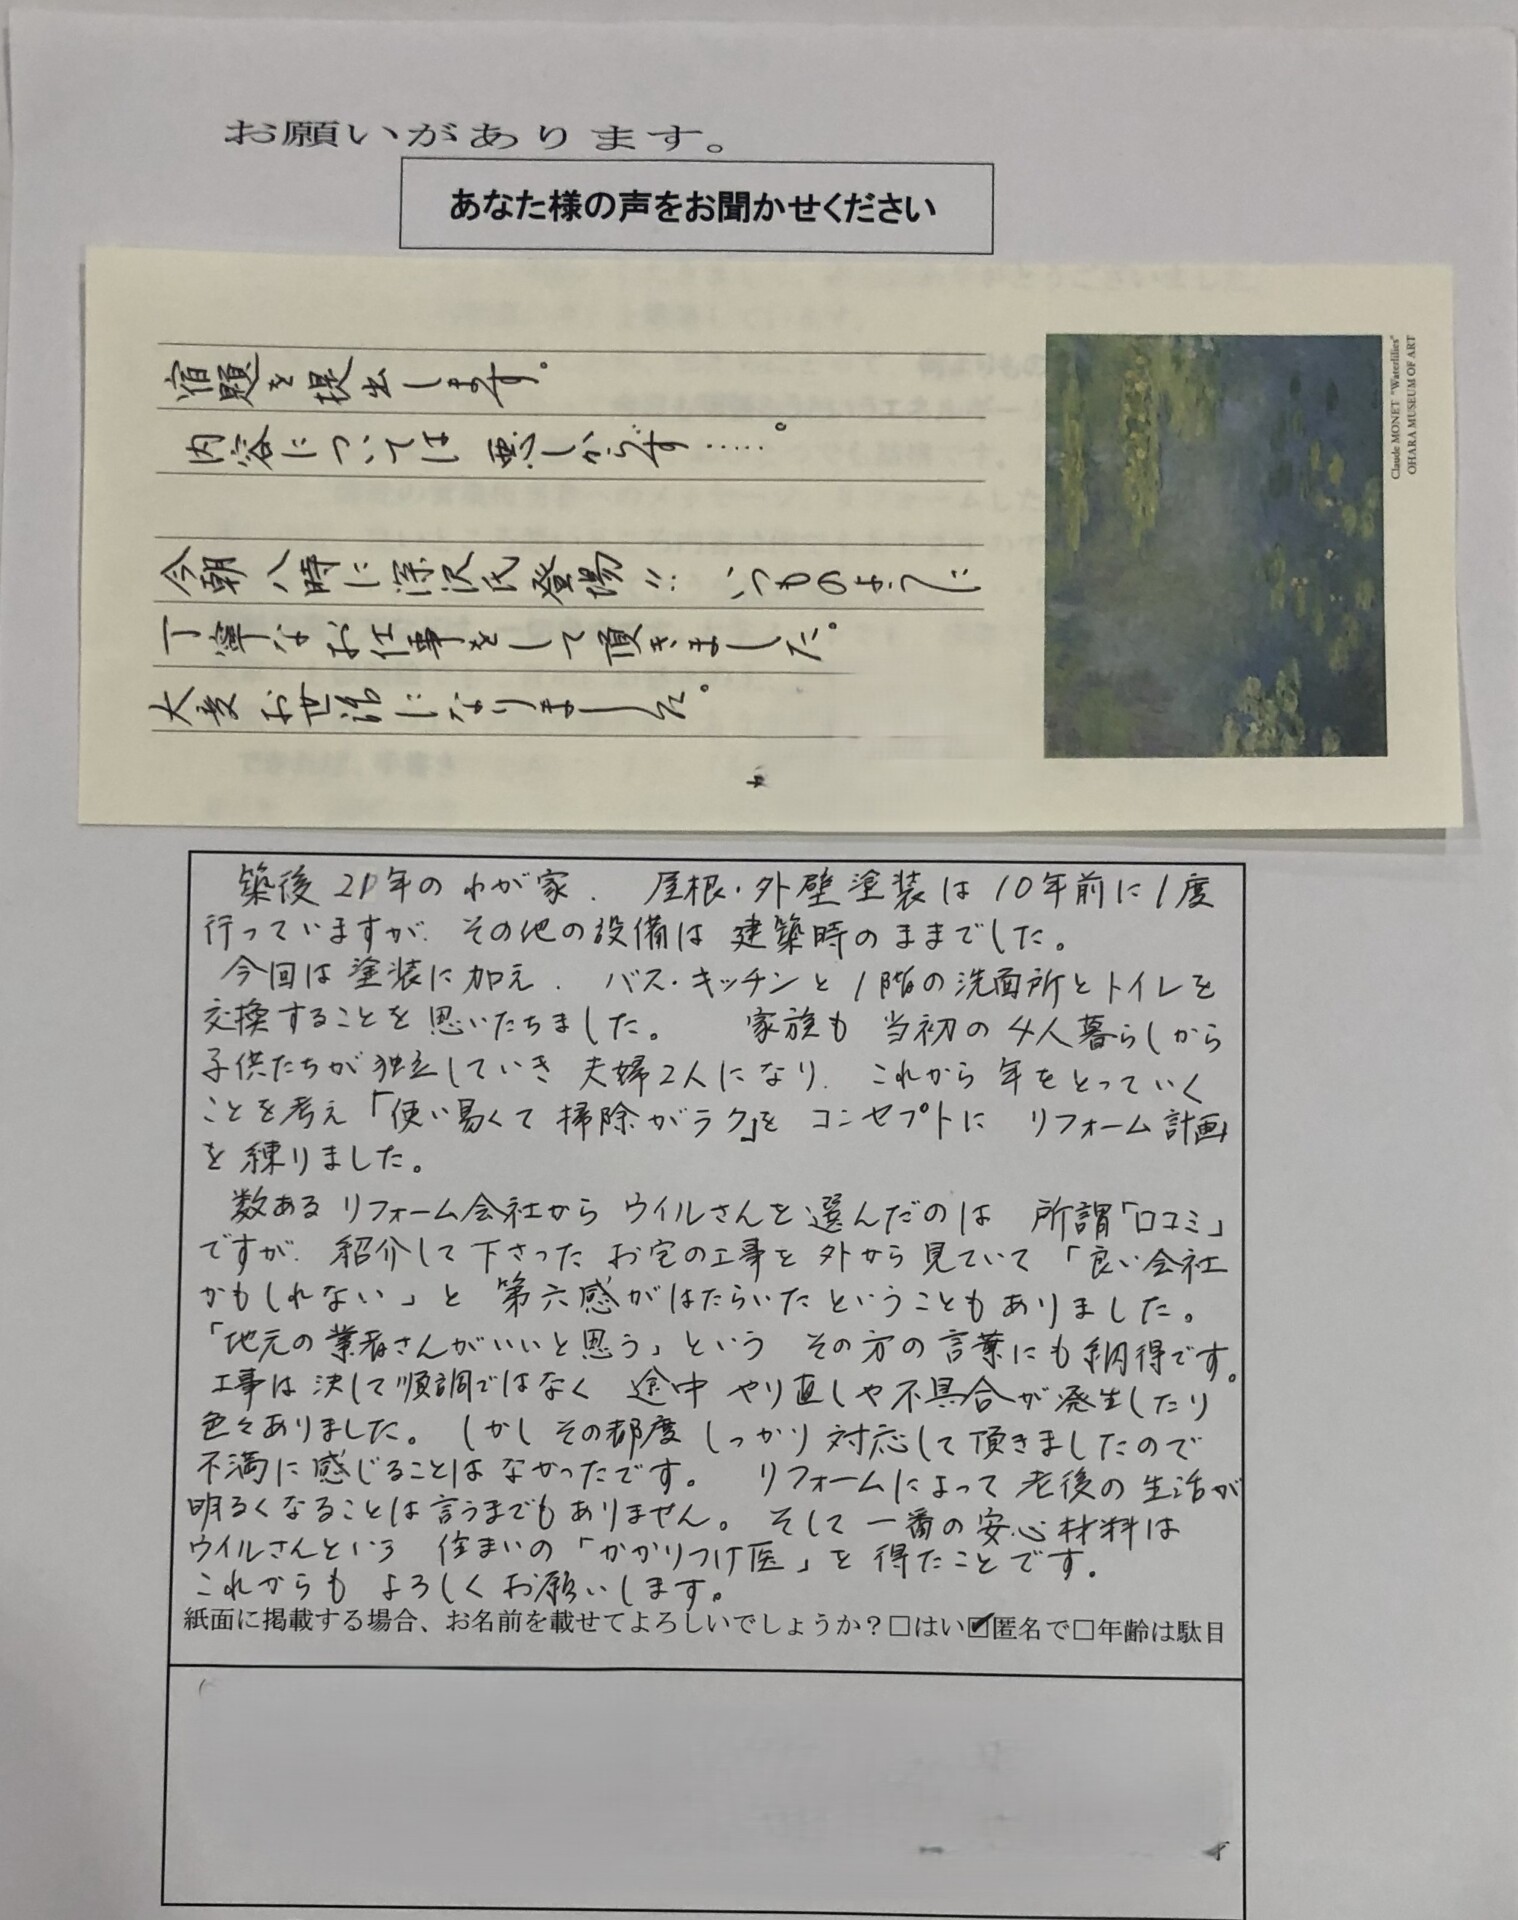 お願いがあります。
あなた様の声をお聞かせください
宿題を提出します。
内容については悪しからず……。
今朝八時に深沢氏登場!! いつものように
丁寧なお仕事をして頂きました。
大変お世話になりました。
Claude MONET "Waterlilies"
OHARA MUSEUM OF ART
築後21年のわが家. 屋根・外壁塗装は10年前に1度
行っていますが、その他の設備は建築時のままでした。
今回は塗装に加え、バス・キッチンと1階の洗面所とトイレを
交換することを思いたちました。 家族も当初の4人暮らしから
子供たちが独立していき夫婦2人になり、これから年をとっていく
ことを考え「使い易くて掃除がラク」をコンセプトにリフォーム計画
を練りました。
数あるリフォーム会社からウイルさんを選んだのは 所謂「口コミ」
ですが、紹介して下さったお宅の工事を外から見ていて「良い会社
かもしれない」と第六感がはたらいたということもありました。
「地元の業者さんがいいと思う」という その方の言葉にも納得です。
工事は決して順調ではなく 途中やり直しや不具合が発生したり
色々ありました。しかしその都度しっかり対応して頂きましたので
不満に感じることはなかったです。 リフォームによって老後の生活が
明るくなることは言うまでもありません。そして一番の安心材料は
ウイルさんという 住まいの「かかりつけ医」を得たことです。
これからもよろしくお願いします。
紙面に掲載する場合、お名前を載せてよろしいでしょうか？□はい☑匿名で□年齢は駄目